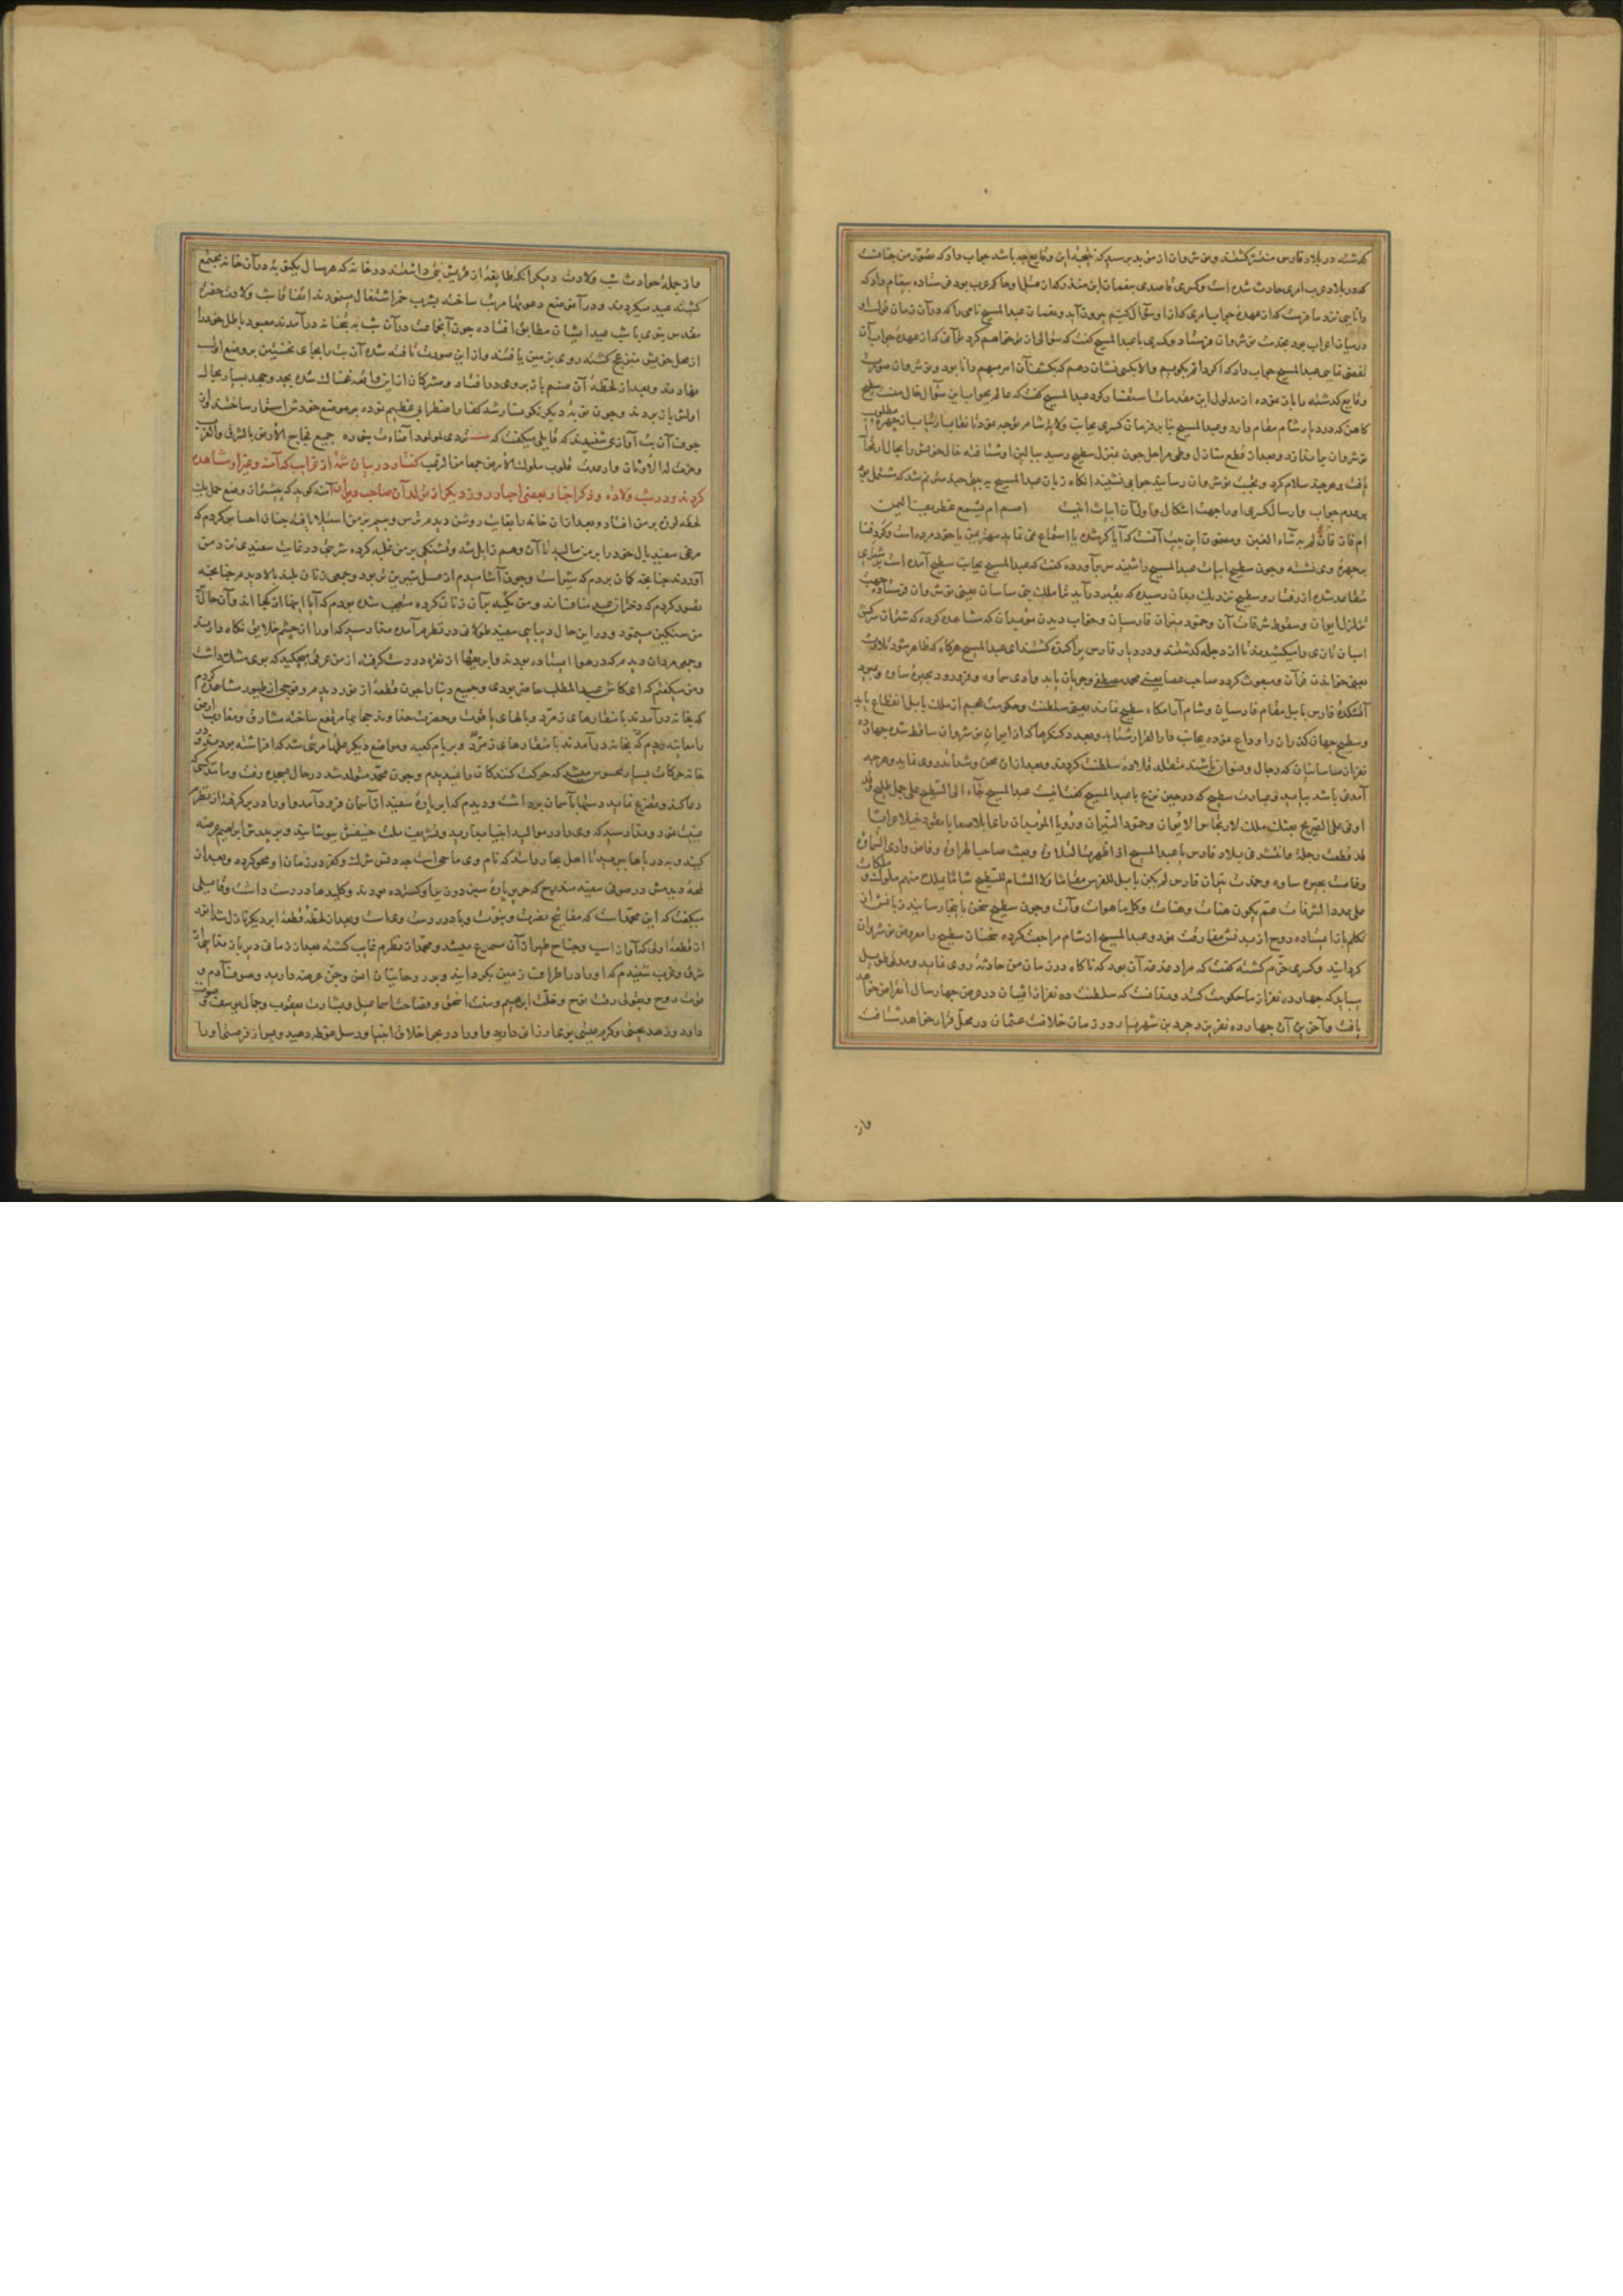 کذشته در بلاد فارس منتشر کشتند و نوشروان از موبد پرسید که نتیجهٔ این وقایع چه باشد جواب داد که تصور من چنانست
که در بلاد عرب امری حادث شده است و کسری قاصدی بنعمان بن منذر که از قبل او حاکم عرب بود فرستاده پیغام داد که
دانایی نزد ما فرست که از عهدهٔ جواب امری که از او سؤال کنیم بیرون آید و نعمان عبدالمسیح نامی را که در آن زمان
در میان اعراب بود بخدمت نوشروان فرستاد و کسری با عبدالمسیح کفت که سؤالی از تو خواهم کرد توانی که از عهدهٔ جواب آن
تفصی نمایی عبدالمسیح جواب داد که اکر دانم بکویم والا بکسی نشان دهم که بکشف آن امر مبهم دانا بود و نوشروان صورت
وقایع کذشته را بیان نموده از مدلول این مقدمات استفسار کرد عبدالمسیح کفت که عالم بجواب این سؤال خال منست سطیح
کاهن که در دیار شام مقام دارد و عبدالمسیح بنا بر فرمان کسری بجانب ولایة شام متوجه
نوشروان و بعد از قطع منازل و طی مراحل چون بمنزل سطیح رسید
یافت و هرچند سلام کرد و تحیت نوشروان رسانید جوابی نشنید آنکاه زبان عبدالمسیح به بیتی چند مترنم شد که مشتمل بود
بر عدم جواب و ارسال کسری او را جهت اشکال و اول آن ابیات اینست اصم ام یسمع غطریف الیمن
ام فات فازلم به شاء العنن و مضمون این بیت آنست که آیا کر شده یا استماع نمی نماید مهتر یمن یا خود مرده است
بر چهرهٔ وی نشسته و چون سطیح ابیات عبدالمسیح را شنید سر برآورده کفت که عبدالمسیح بجانب سطیح آمده است بر شتری
و سطیح نزدیک بدان رسیده که بقبر در آید ملک بنی ساسان یعنی نوشروان فرستاده جهت
تزلزل ایوان و سقوط شرفات آن و خمود نیران فارسیان و خواب دیدن موبدان که مشاهده کرده که شتران سرکش
اسبان تازی را میکشیدند تا از دجله کذشتند و در دیار فارس پراکنده کشتند ای عبدالمسیح هرکاه که ظاهر شود تلاوت
یعنی خواندن قرآن و مبعوث کردد صاحب عصا یعنی محمد مصطفی و جریان یابد وادی سماوه و فرو رود بحیرهٔ ساوه و بمیرد
آتشکدهٔ فارس بابل مقام فارسیان و شام آرامکاه سطیح نماند یعنی سلطنت و حکومت عجم از ملک بابل انقطاع یابد
و سطیح جهان کذران را وداع نموده بجانب دارالقرار شتابد و بعدد کنکرها که از ایوان نوشروان ساقط شده چهارده
نفر از ساسانیان که رجال و نسوان باشند متقلد قلادهٔ سلطنت کردند و بعد از آن محن و شداید روی نماید و هرچه
آمدنی باشد بیاید و عبارت سطیح که در حین نزع با عبدالمسیح کفت اینست عبدالمسیح جاء الی السطیح علی جمل طلیح وقد
اوفی علی الضریح بعثک ملک لارتجاس الایوان و خمود النیران و رؤیا الموبدان رای ابلا صعابا یقود خیلا عرابا
قد قطعت دجلة وانتشرت فی بلاد فارس یا عبدالمسیح اذا ظهرت التلاوة و بعث صاحب الهراوة و فاض وادی السماوة
و غاضت بحیرة ساوه و خمدت نیران فارس لم یکن بابل للفرس مقاما ولا الشام للسطیح شاما یملک منهم ملوک و ملکات
علی عدد الشرفات ثم یکون هنات وهنات وکل ما هوآت وآت و چون سطیح سخن باینجا رسانید زبانش از
تکلم باز ایستاده روح از بدنش مفارقت نمود و عبدالمسیح از شام مراجعت کرده سخنان سطیح را معروض نوشروان
کردانید و کسری خرم کشته کفت که مراد من آن بود که ناکاه در زمان من حادثهٔ روی نماید و مدتی طویل
بباید که چهارده نفر از ما حکومت کنند و ندانست که سلطنت ده نفر از ایشان در عرض چهار سال انقراض خواهد
یافت و آخرین آن چهارده نفر یزدجرد بن شهریار در زمان خلافت عثمان در محل قرار خواهد شتافت
واز
واز جملهٔ حوادث شب ولادت دیکر آنکه طایفهٔ از قریش بتی داشتند در خانه که هر سال یکنوبه در آن خانه مجتمع
کشته عید میکردند و در آن موضع دعوتها مرتب ساخته بشرب خمر اشتغال مینمودند اتفاقا شب ولادت حضرت
مقدس نبوی با شب عید ایشان مطابق افتاده چون آنجماعت در آن شب به بتخانه درآمدند معبود باطل خود را
از محل خویش منزعج کشته روی بر زمین یافتند و از این صورت آن بت را بجای نخستین بر وضع اول
نهادند و بعد از لحظهٔ آن صنم باز بر روی درافتاد و مشرکان از این واقعه غمناک شده بجد و جهد بسیار بحال
اولش باز بردند و چون نوبه دیکر نکونسار شد کفار باضطرابی عظیم نموده بر موضع خودش استوار ساختند از
جوف آن بت آوازی شنیدند که قایلی میکفت که تردی لمولود اضاءت بنوره جمیع فجاج الارض بالشرق والغرب
وخرت له الاوثان وارعدت قلوب ملوک الارض جمعا من الرعب کفتار در بیان شمهٔ از غرایب که آمنه و غیر او مشاهده
کردند در شب ولادة و ذکر اخبار بعضی احبار روز دیکر از تولد آن صاحب آمنه کوید که وضع حمل یک
لحظه لرزه بر من افتاد و بعد از آن خانه را بغایت روشن دیدم ترس و بیم بر من استیلا یافته چنان احساس کردم که
مرغی سفید بال خود را بر من مالید تا آن وهم زایل شد و تشنکی بر من غلبه کرده شربتی در غایت سفیدی نزد من
آوردند چنانچه کمان بردم که شیر است و چون آشامیدم از عسل شیرین تر بود و جمعی زنان بلند بالا دیدم چنانچه
تصور کردم که دختران عبد مناف اند و من تکیه بر آن زنان کرده متعجب شده بودم که آیا اینها از کجا اند و آن حال
من سنکین مینمود و در این حال دیبایی سفید طولانی در نظرم آمده ندا رسید که او را از چشم خلایق نکاه دارید
و جمعی مردان دیدم که در هوا ایستاده بودند و ابریقها از نقره در دست کرفته از من عرقی میچکید که بوی مشک داشت
و من میکفتم که ای کاش عبدالمطلب حاضر بودی و فوجی از طیور مشاهده کردم
که بخانه درآمدند با منقارهای زمرد و بالهای یاقوت و حضرت حق تعالی حجابها مرتفع ساخته مشارق و مغارب ارض
را معاینه دیدم و بر بام کعبه و مواضع دیکر علمها مرئی شد که افراشته بودند و در
خانه حرکات بسیار محسوس میشد که حرکت کنندکان را نمیدیدم و چون محمد متولد شد در حال بسجده رفت و مانند کسی که
دعا کند و تضرع نماید دستها بآسمان برداشت و دیدم که ابر پارهٔ سفید از آسمان فرود آمد و او را در بر کرفته از نظرم
غیبت نمود و ندا رسید که وی را در موالید انبیا ببارید و تشریف ملت حنیفش بپوشانید و بر پدرش ابراهیم عرضه
کنید و به دریاها ببرید تا اهل بحار بدانند که نام وی ماحی است چه دقتی شرک و کفر در زمان او محو کردد و بعد از
لمحهٔ دیدمش در صوفی سفید مندرج که حریر پارهٔ سبز در زیر او کسترده بودند و کلیدها در دست داشت و قایلی
میکفت که این محمد است که مفاتیح نصرت و نبوت و باد در دست وی است و بعد از لحظهٔ قطعهٔ ابر دیکر نازل شد
از قطعهٔ اولی که آواز اسب و جناح طیر از آن مسموع میشد و محمد از نظرم غایب کشته بعد از زمانی
شرق و غرب شنیدم که او را در اطراف زمین بکردانید و بر روحانیان انس و جن عرضه دارید و صفوت آدم و
رقت نوح و خلت ابراهیم و سنت اسحق و فصاحت اسماعیل و بشارت یعقوب و جمال یوسف و صوت
داود و زهد یحیی و کرم عیسی بوی ارزانی دارید و او را در بحر اخلاق انبیا و رسل غوطه دهید